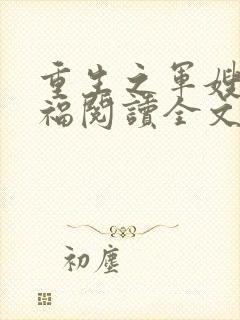 重生之軍嫂
福閱讀全文
初塵